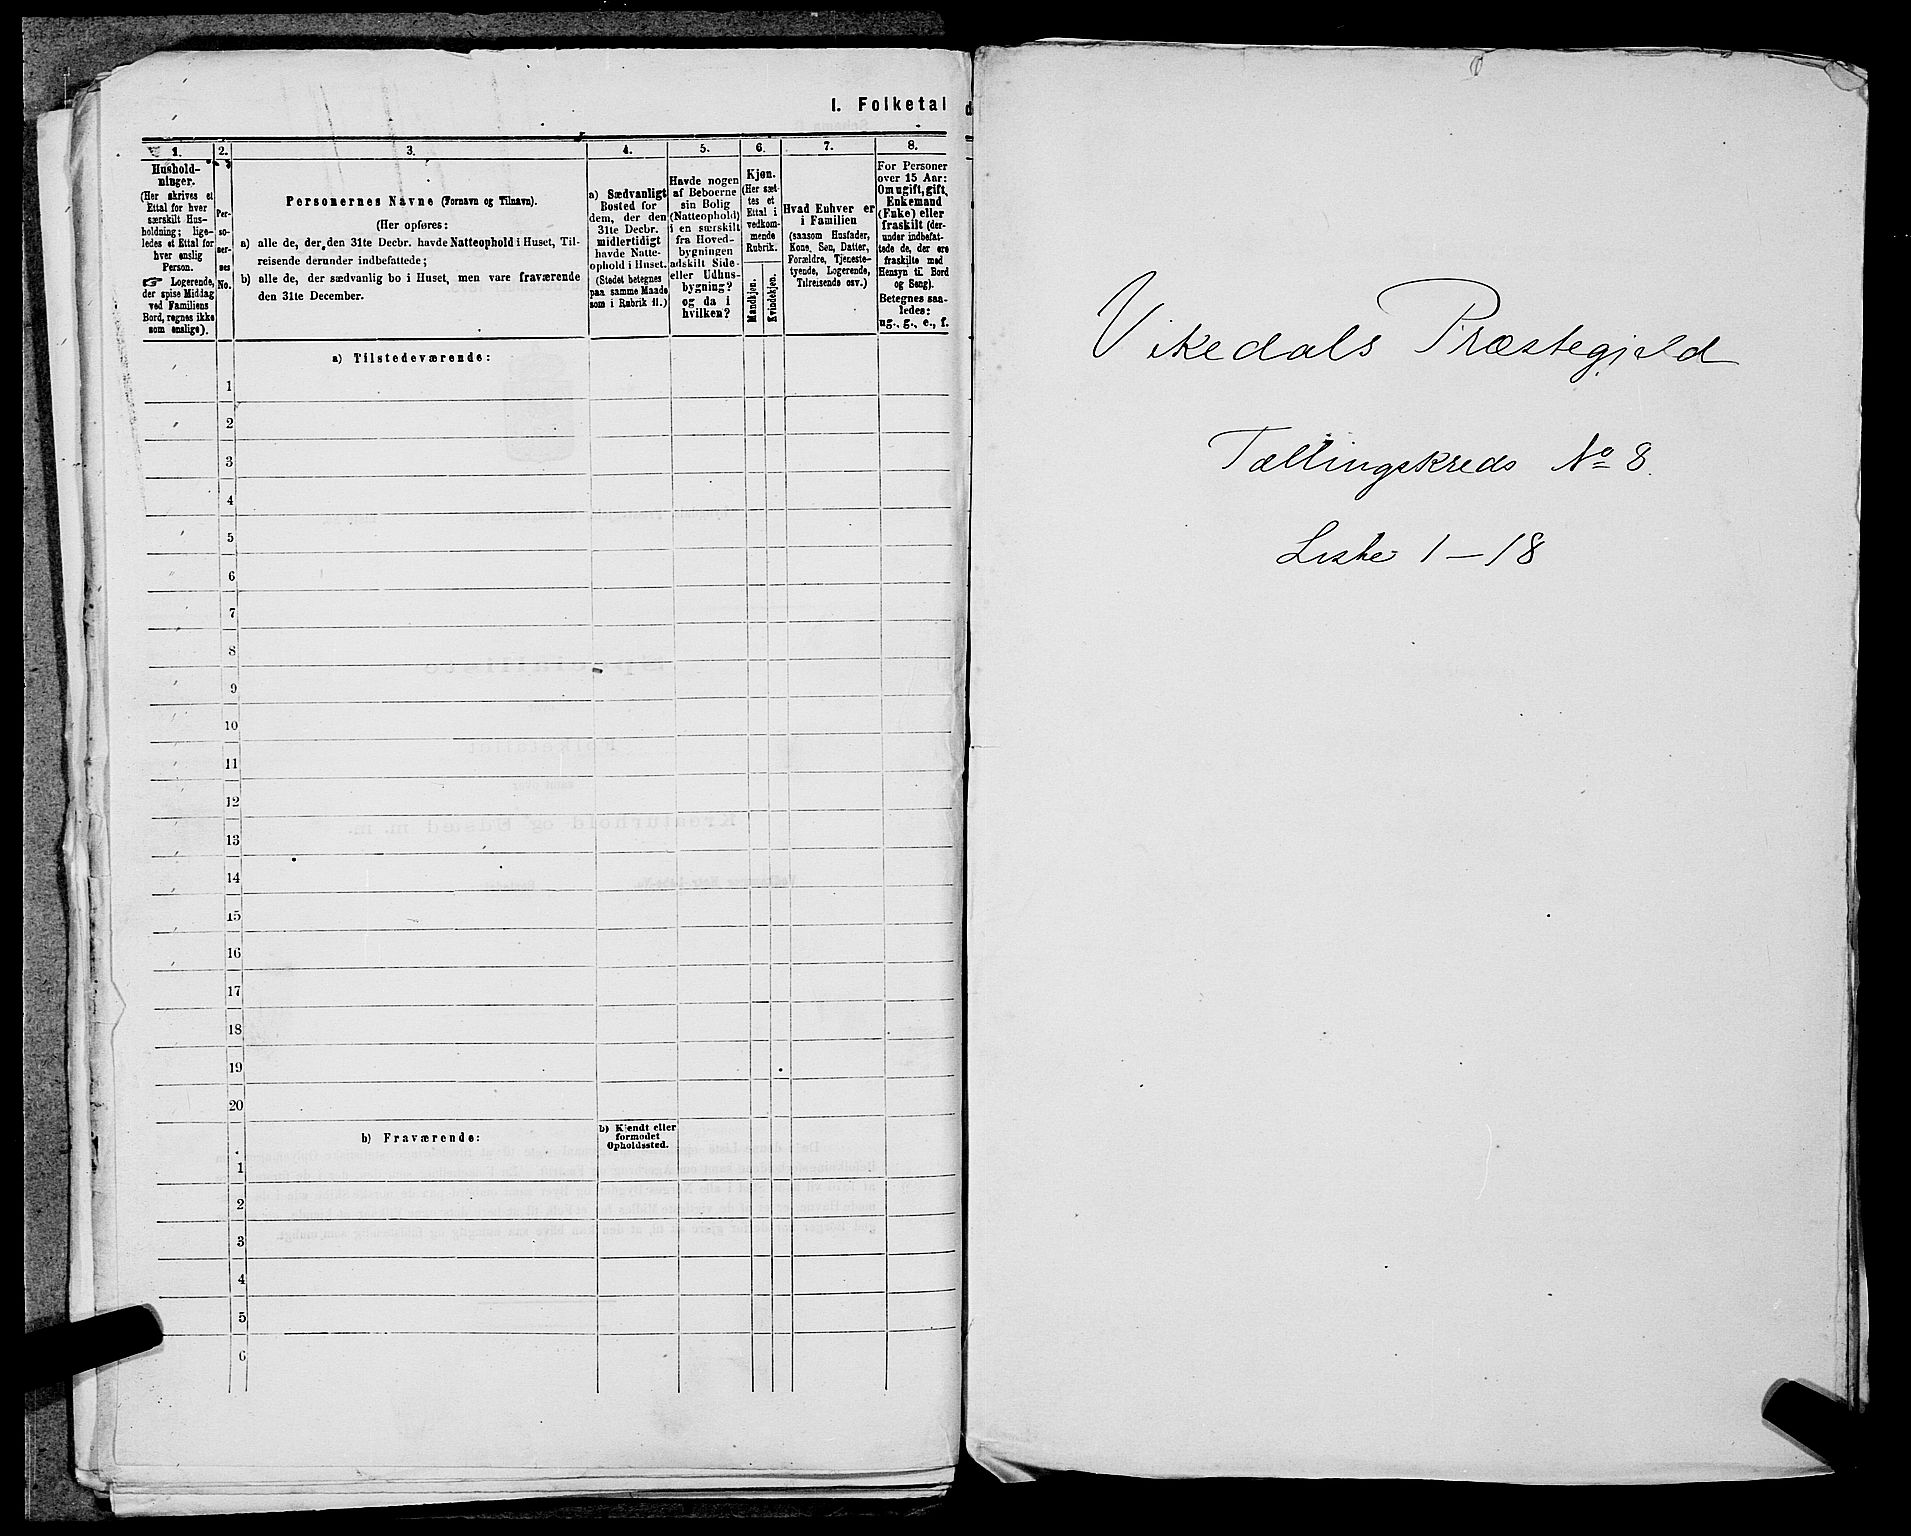 I. Folketal
d
1.
Hushold-
ninger.
(Her skrives et
Ettal for hver
særskilt Hus-
holdning; lige-
ledes et Ettal for
hver enslig
Person.
☞ Logerende,
der spise Middag
ved Familiens
Bord, regnes ikke
som enslige).
2.
Per-
so-
ner-
nes
No.
3.
Personernes Navne (Fornavn og Tilnavn).
(Her opføres:
a) alle de, der den 31te Decbr. havde Natteophold i Huset, Til-
reisende derunder indbefattede;
b) alle de, der sædvanlig bo i Huset, men vare fraværende
den 31te December.
4.
a) Sædvanligt
Bosted for
dem, der den
31te Decbr.
midlertidigt
havde Natte-
ophold i Huset.
(Stedet betegnes
paa samme Maade
som i Rubrik 11.)
5.
Havde nogen
af Beboerne
sin Bolig
(Natteophold)
i en særskilt
fra Hoved-
bygningen
adskilt Side-
eller Udhus-
bygning?
og da i
hvilken?
6.
Kjøn.
(Her sæt-
tes et
Ettal i
vedkom-
mende
Rubrik.
Mandkjøn.
Kvindekjøn.
7.
Hvad Enhver er
i Familien
(saasom Husfader,
Kone, Søn, Datter,
Forældre, Tjeneste-
tyende, Logerende,
Tilreisende osv.)
8.
For Personer
over 15 Aar:
Om ugift, gift,
Enkemand
(Enke) eller
fraskilt (der-
under indbefat-
tede de, der ere
fraskilte med
Hensyn til Bord
og Seng).
Betegnes saa-
ledes:
ug., g., e., f.
a) Tilstedeværende:
1
2
3
4
5
6
7
8
9
10
11
12
13
14
15
16
17
18
19
20
b) Fraværende:
b) Kjendt eller
formodet
Opholdssted.
1
2
3
4
5
6
Vikedals Præstegjeld
Tællingskreds No 8.
Liste 1–18